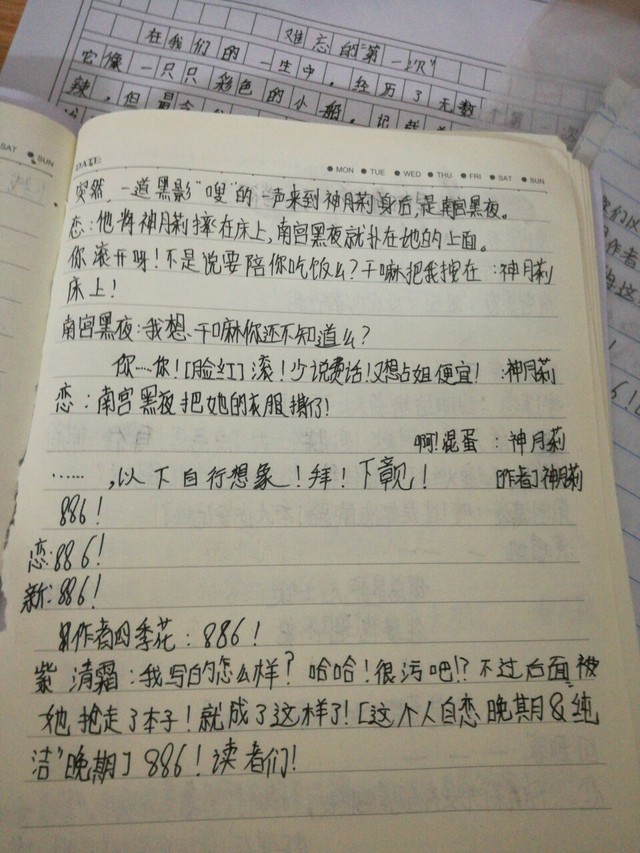 难忘的"第一次"
在我们的一生中，经历了无数
它像一只只彩色的小船，记载着
辣，但最令
DATE:
SAT SUN
MON TUE WED THU FRI SAT SUN
突然，一道黑影"嗖"的一声来到神月莉身后，是南宫黑夜。
恋：他将神月莉摔在床上，南宫黑夜就扑在她的上面。
你滚开呀！不是说要陪你吃饭么？干嘛把我按在：神月莉
床上！
南宫黑夜：我想干嘛你还不知道么？
你……你！[脸红]滚！少说费话！又想占姐便宜！：神月莉
恋：南宫黑夜把她的衣服撕了！
啊！混蛋：神月莉
……，以下自行想象！拜！下章见！[作者]神月莉
886！
恋：886！
新：886！
作者四季花：886！
紫清霜：我写的怎么样？哈哈！很污吧！？不过后面被
她抢走了本子！就成了这样了！[这个人自恋晚期&纯
洁"晚期]886！读者们！